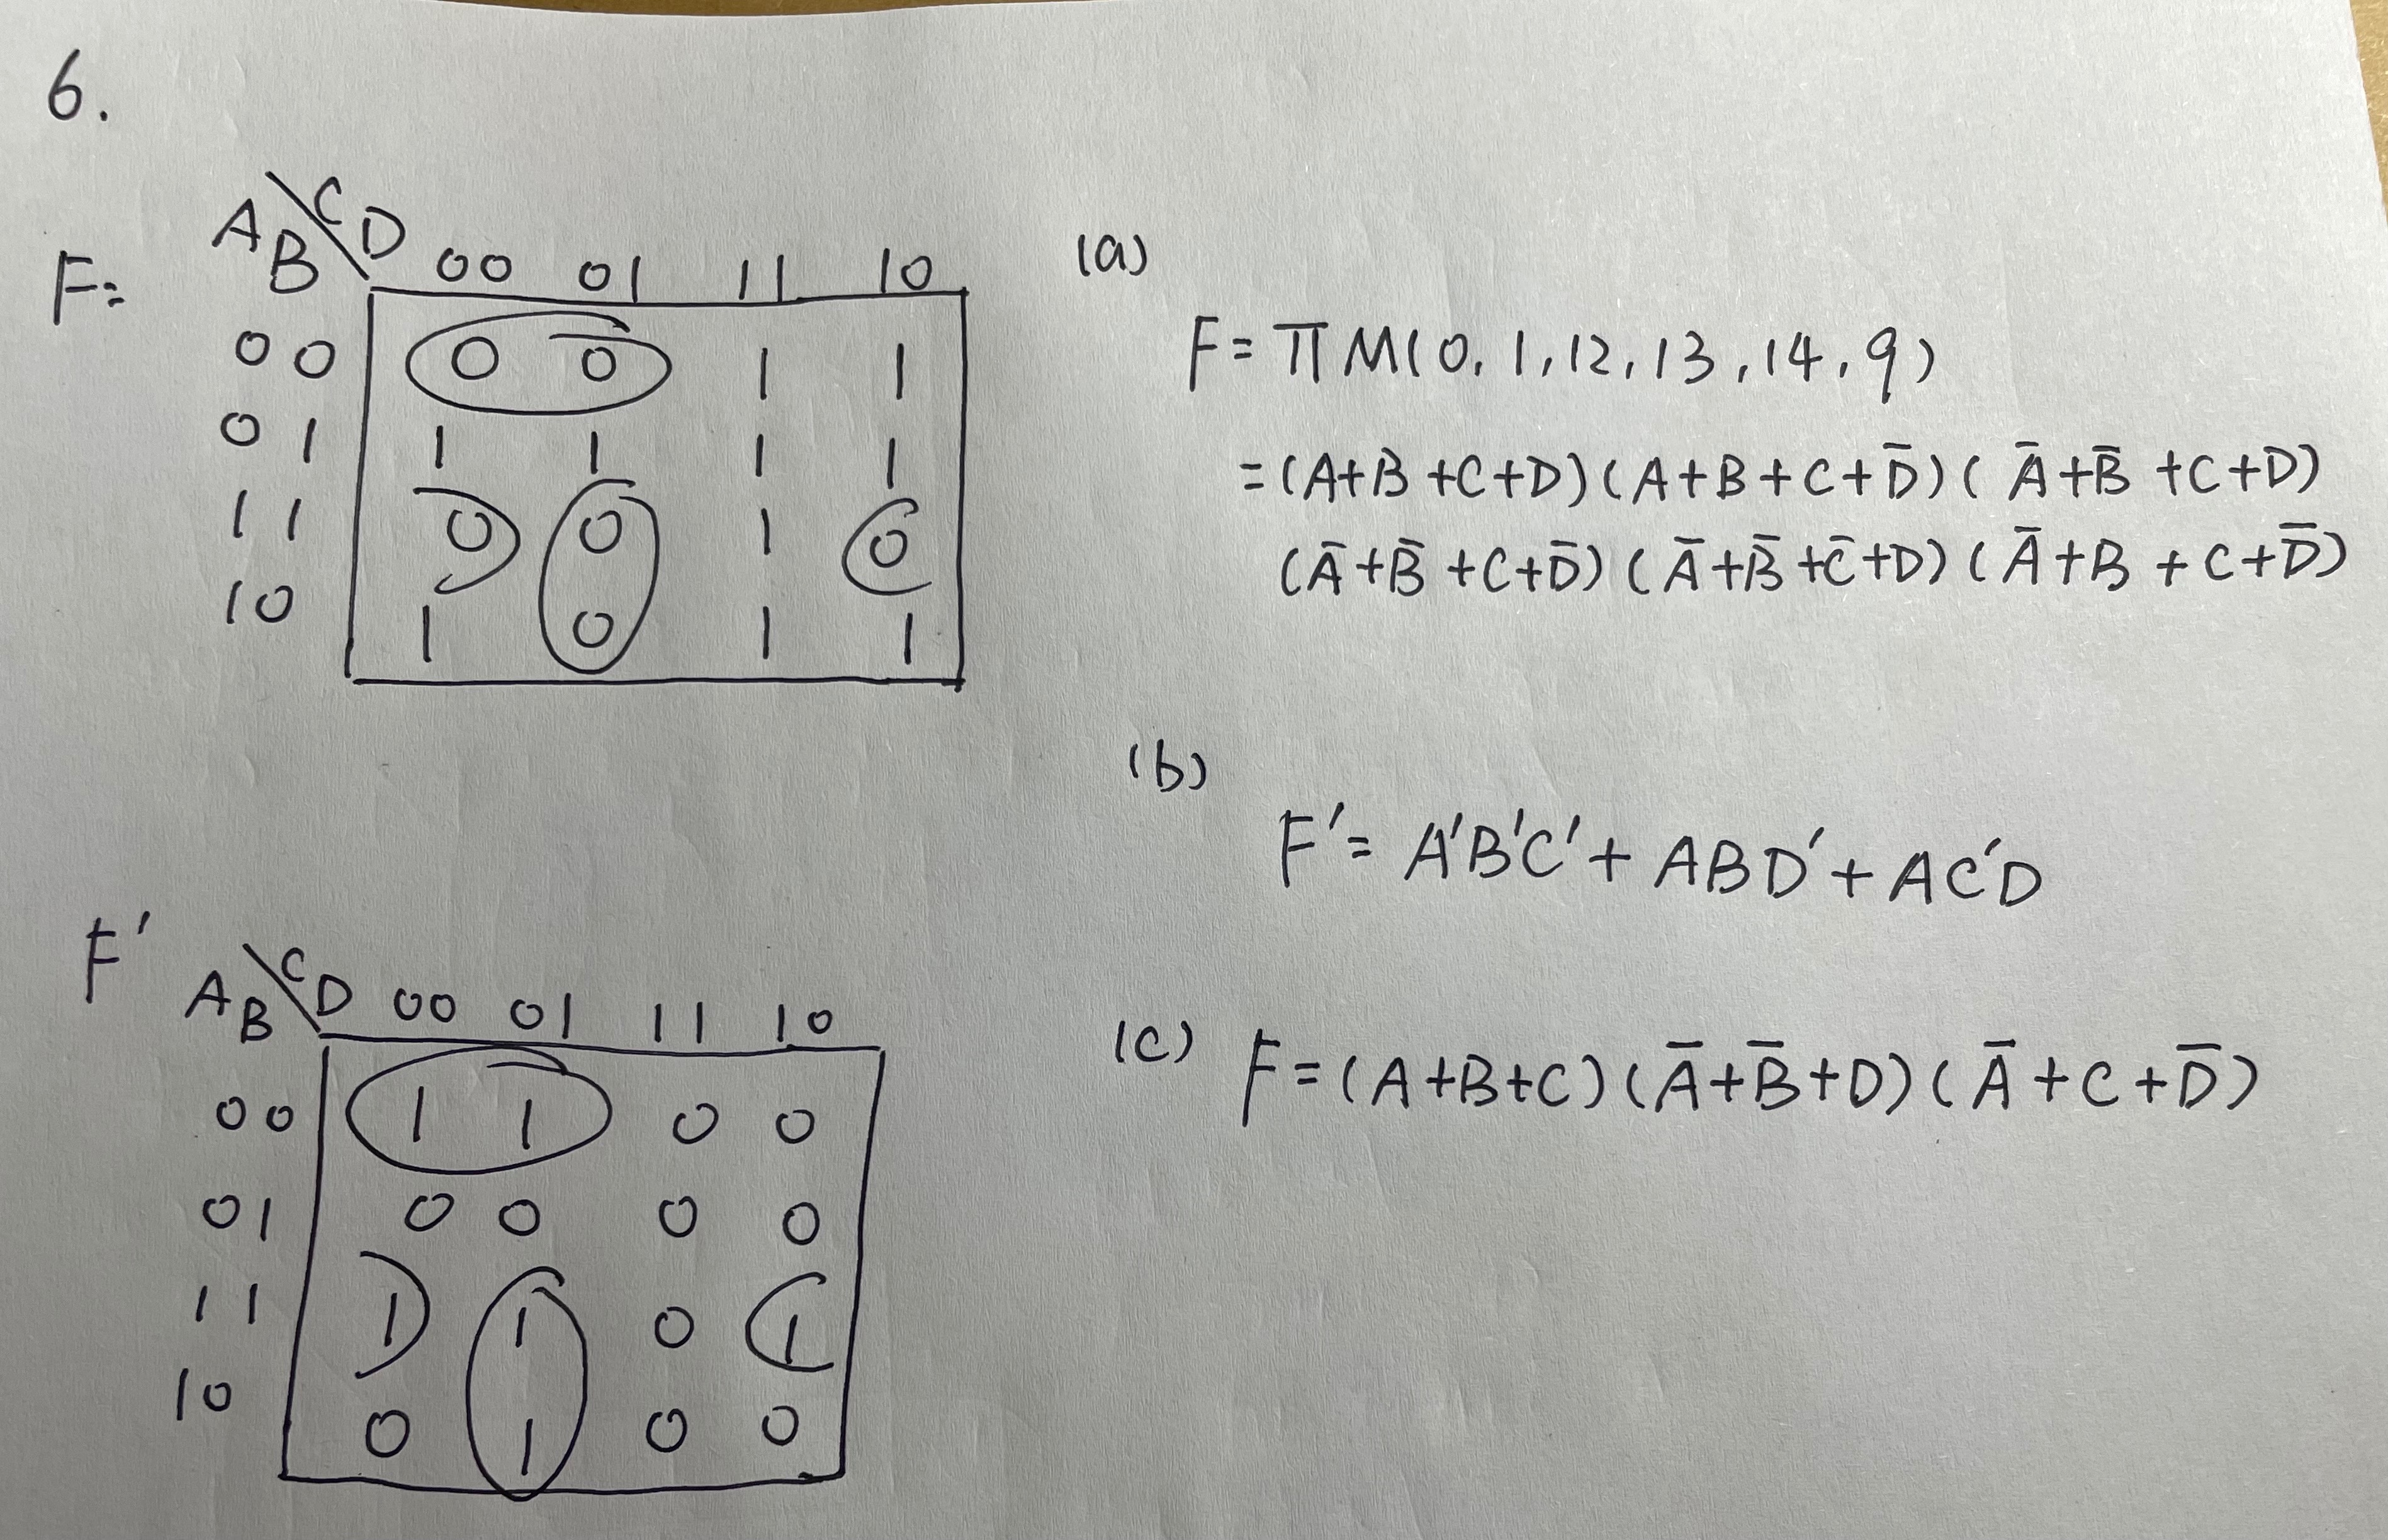 6.
F=
AB\CD 00 01 11 10
00 0 0 1 1
01 1 1 1 1
11 0 0 1 0
10 1 0 1 1
(a)
F = ΠM(0, 1, 12, 13, 14, 9)
= (A+B+C+D)(A+B+C+D̅)(A̅+B̅+C+D)
(A̅+B̅+C+D̅)(A̅+B̅+C̅+D)(A̅+B+C+D̅)
(b)
F' = A'B'C' + ABD' + AC'D
F'
AB\CD 00 01 11 10
00 1 1 0 0
01 0 0 0 0
11 1 1 0 1
10 0 1 0 0
(c) F = (A+B+C)(A̅+B̅+D)(A̅+C+D̅)